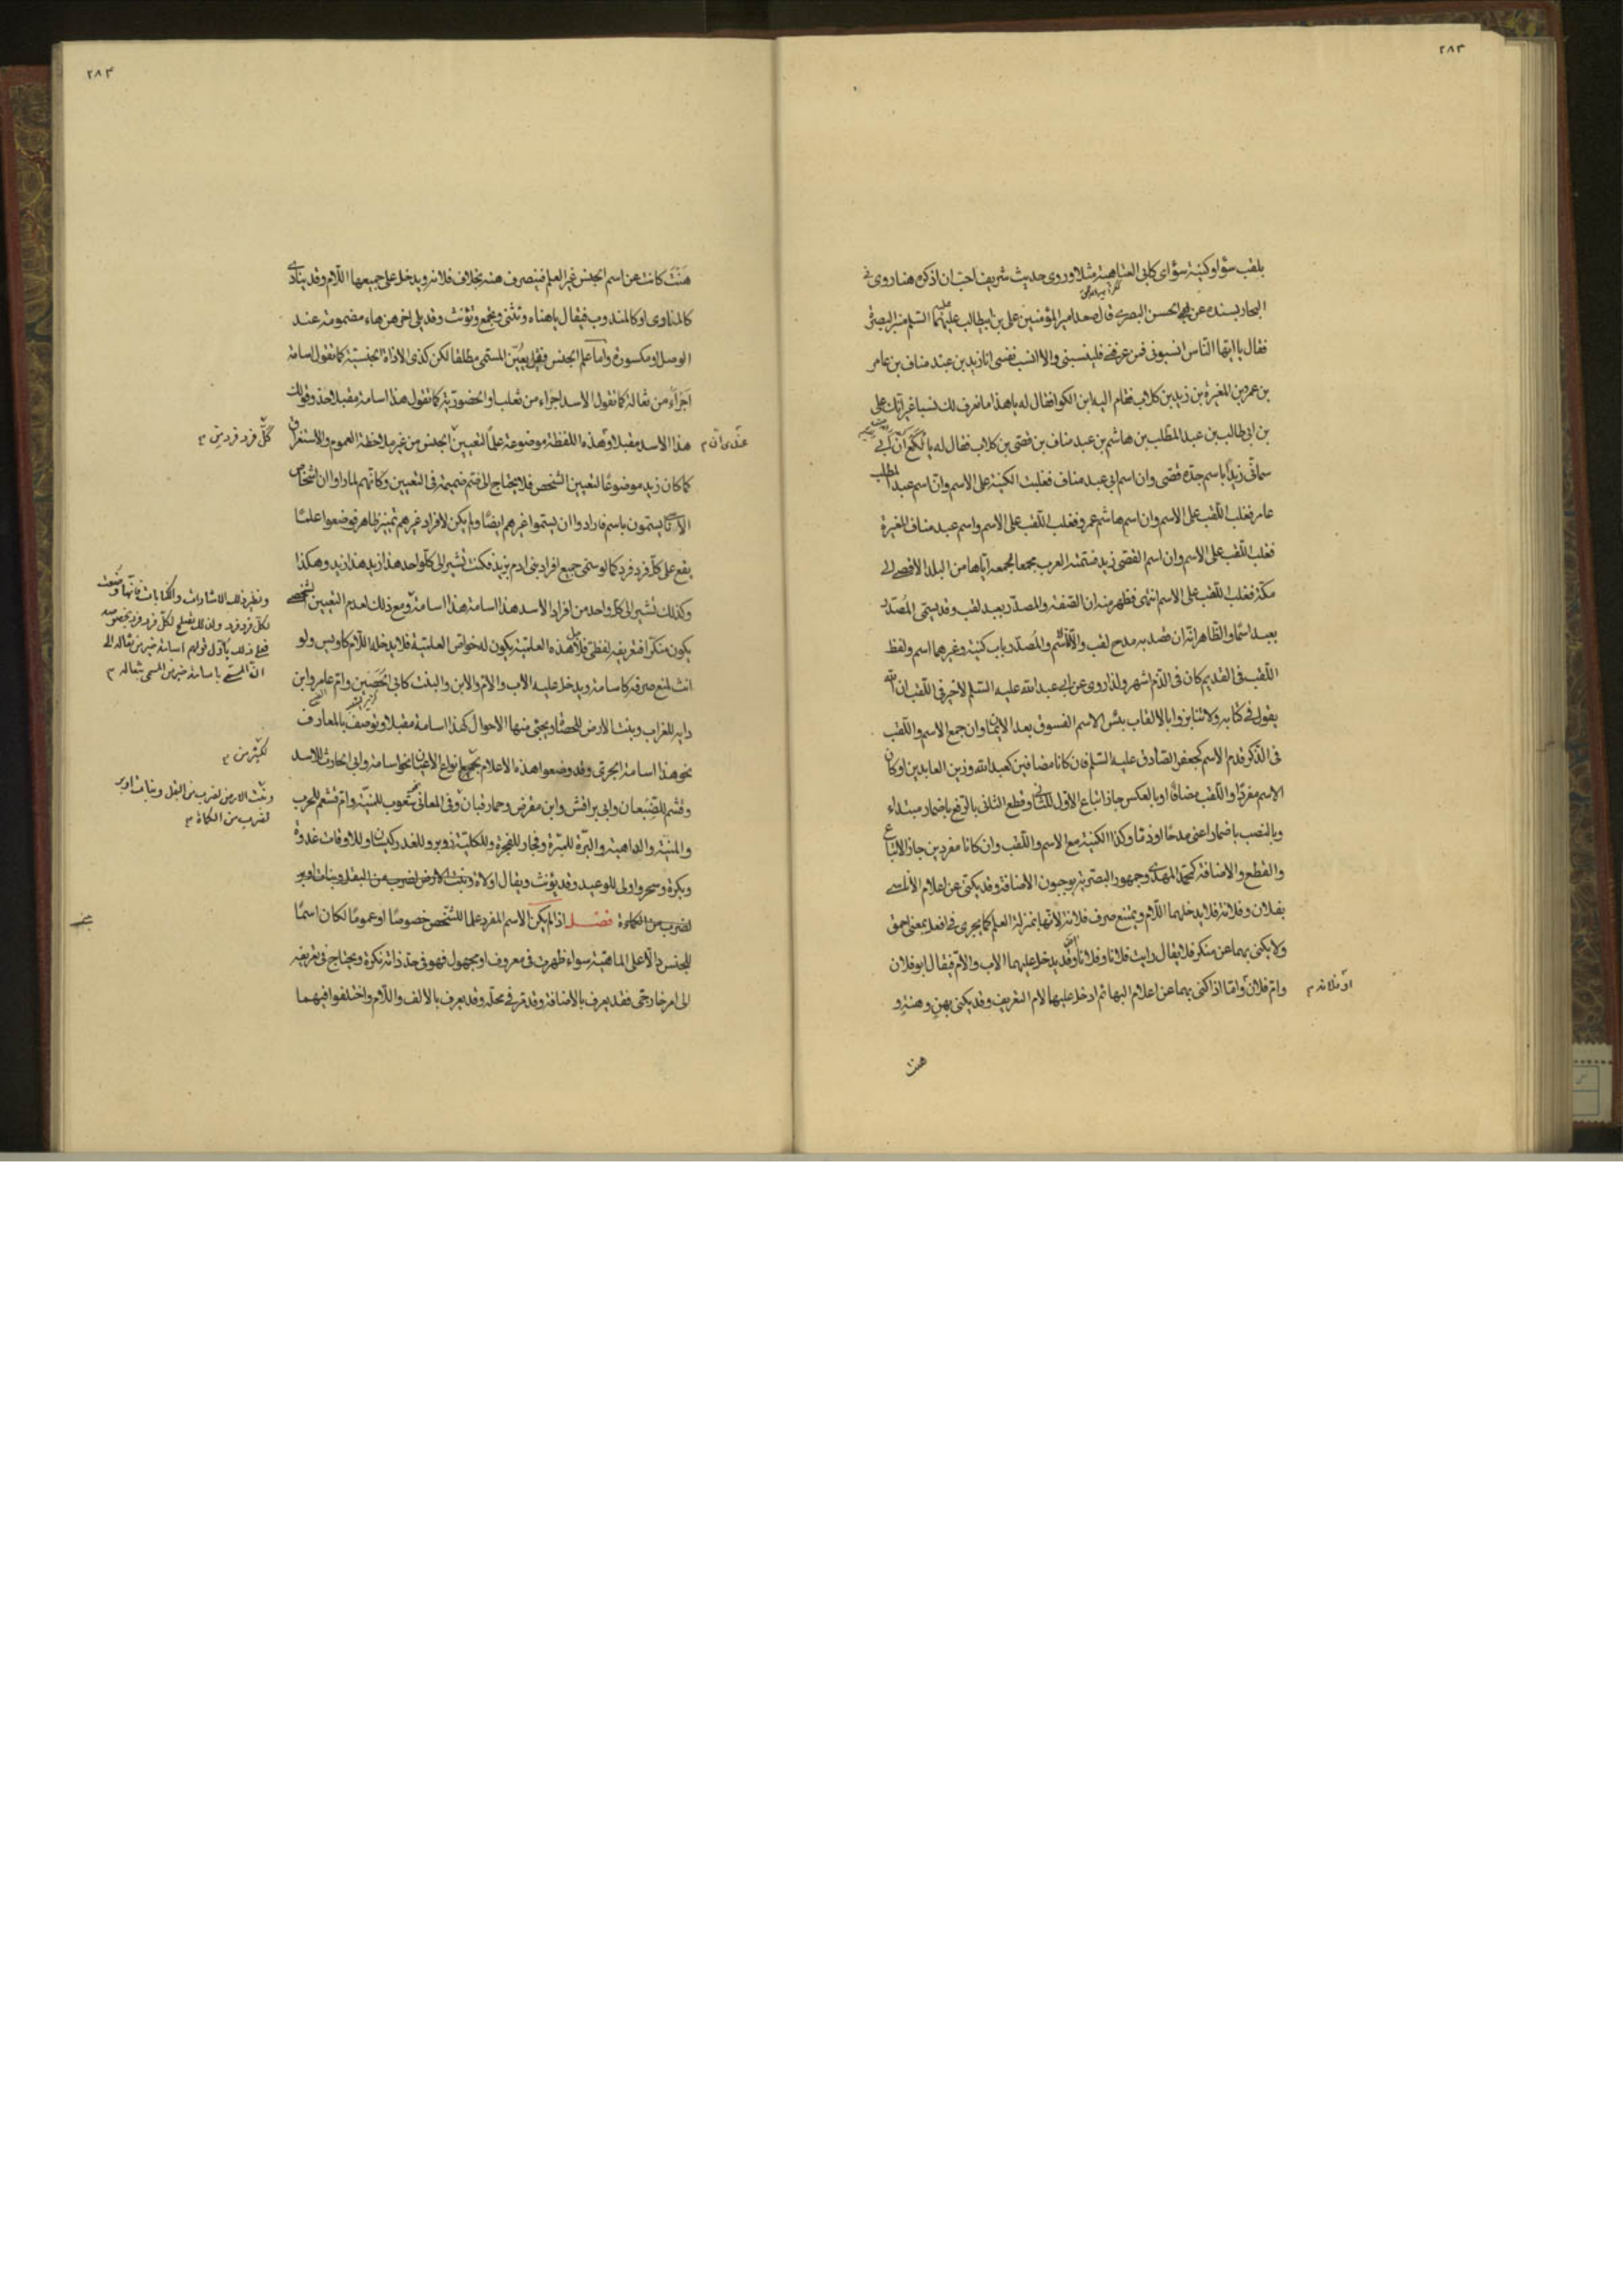 ٢٨٣
بلقب سؤ او كنية سؤ اى كابى العتاهية مثلا وروى حديث شريف احب ان اذكره هنا روى فى
البحار بسنده عن الحسن البصرى قال صعد امير المؤمنين على بن ابيطالب عليهما السلم منبر البصرة
فقال يا ايها الناس انسبونى فمن عرفنى فلينسبنى والا انسب نفسى انا زيد بن عبد مناف بن عامر
بن عمرو بن المغيرة بن زيد بن كلاب فقام اليه ابن الكوا فقال له يا هذا ما نعرف لك نسبا غير انك على
بن ابى طالب بن عبد المطلب بن هاشم بن عبد مناف بن قصى بن كلاب فقال له يا لكع ان ابى
سمانى زيدا باسم جده قصى وان اسم ابى عبد مناف فغلبت الكنية على الاسم وان اسم عبد المطلب
عامر فغلب اللقب على الاسم وان اسم هاشم عمرو فغلب اللقب على الاسم واسم عبد مناف المغيرة
فغلب اللقب على الاسم وان اسم القصى زيد فسمته العرب مجمعا لجمعه اياها من البلد الاقصى الى
مكة فغلب اللقب على الاسم انتهى فظهر منه ان الصفة والمصدر يعد لقب وقد يسمى المصدر
بعد اسما والظاهر انه ان قصد به مدح لقب والا فاسم والمصدر باب كنية وغيرهما اسم ولفظ
اللقب فى القديم كان فى الذم اشهر ولذا روى عن ابى عبد الله عليه السلم لا خير فى اللقب ان الله
يقول فى كتابه ولا تنابزوا بالالقاب بئس الاسم الفسوق بعد الايمان وان جمع الاسم واللقب
فى الذكر قدم الاسم كجعفر الصادق عليه السلم فان كانا مضافين كعبد الله وزين العابدين او كان
الاسم مفردا واللقب مضافا او بالعكس جاز اتباع الاول للثانى وقطع الثانى بالرفع باضمار مبتداء
وبالنصب باضمار اعنى مدحا او ذما وكذا الكنية مع الاسم واللقب وان كانا مفردين جاز الاتباع
والقطع والاضافة كمحمد المهدى وجمهور البصرية يوجبون الاضافة وقد يكنى عن اعلام الاناسى
بفلان وفلانة فلا يدخلهما اللام ويمتنع صرف فلانة لانها بمنزلة العلم كما يجرى فى افعل بمعنى احمق
ولا يكنى بهما عن منكر فلا يقال رايت فلانا وفلانا وقد يدخل عليهما الاب والام فيقال ابو فلان
وام فلان واما اذا كنى بهما عن اعلام البهائم ادخل عليها لام التعريف وقد يكنى بهن وهنة و
او فلانة م
هنت
٢٨٤
هنت كانت عن اسم الجنس غير العلم فينصرف هنه بخلاف فلانه ويدخل على جميعها اللام وقد ينادى
كالمنادى او كالمندوب فيقال يا هناه وتثنى وتجمع وتؤنث وقد يلى اخر هن هاء مضمومة عند
الوصل او مكسورة واما علم الجنس فقد يعين المسمى مطلقا لكن كذى الاداة الجنسية كما تقول اسامة
اجراء من ثعالة كما تقول الاسد اجراء من ثعلب او الحضورية كما تقول هذا اسامة مقبلا حذو قولك
هذا الاسد مقبلا وهذه اللفظة موضوعة علما لتعيين الجنس من غير ملاحظة العموم والاستغراق
عندى ان م
كل فرد فرد من م
كما كان زيد موضوعا لتعيين الشخص فلا يحتاج الى ضم ضميمة فى التعيين وكانهم لما راوا ان اشخاص
الاناسى يسمون باسم فارادوا ان يسموا غيرهم ايضا ولم يكن لافراد غيرهم تميز ظاهر فوضعوا علما
يقع على كل فرد فرد كما لو سمى جميع افراد بنى ادم بزيد فكنت تشير الى كل واحد هذا زيد هذا زيد وهكذا
وكذلك تشير الى كل واحد من افراد الاسد هذا اسامة هذا اسامة ومع ذلك لعدم التعيين الشخصى
ونظير ذلك الاشارات والكنايات فانها وضعت
لكل فرد فرد ولذلك يصلح لكل فرد فرد بخصوصه
فعلى ذلك ياول قولهم اسامة خير من ثعالة الى
ان المسمى باسامة خير من المسمى بثعالة م
يكون منكرا فتعريفه لفظى فلاجل هذه العلمية يكون له خواص العلمية فلا يدخله اللام كاويس ولو
انث لمنع صرفه كاسامة ويدخل عليه الاب والام والابن والبنت كابى الحصين وام عامر وابن
داية للغراب وبنت الارض للحصاة ويجئ منها الاحوال كهذا اسامة مقبلا ويوصف بالمعارف
نحو هذا اسامة الجرئ وقد وضعوا هذه الاعلام لجميع انواع الاعيان نحو اسامة وابى الحارث للاسد
لكثير من م
وقثم للضبعان وابى براقش وابن مقرض وحمار قبان وفى المعانى شعوب للمنية وام قشعم للحرب
وبنت الارض لضرب من البقل وبنات اوبر
لضرب من الكماة م
والمنية والداهية والبرة للمبرة وفجار للفجرة وللكلية زوبر وللغدر كيسان وللاوقات غدوة
وبكرة وسحر واولى للوعيد وقد يؤنث ويقال اولاة وبنت الارض لضرب من البقل وبنات اوبر
لضرب من الكماءة فصل اذا لم يكن الاسم المفرد علما للشخص خصوصا او عموما لكان اسما
للجنس دالا على الماهية سواء ظهرت فى معروف او مجهول فهو فى حد ذاته نكرة ويحتاج فى تعريفه
الى امر خارجى فقد يعرف بالاضافة وقد مر فى محله وقد يعرف بالالف واللام واختلفوا فيهما